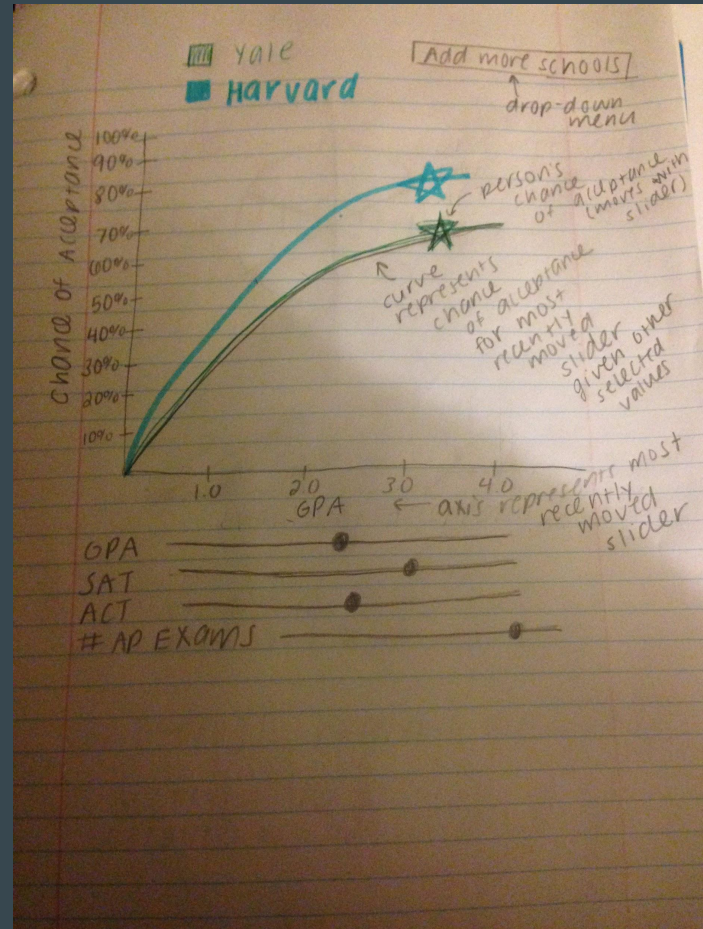 Yale
Harvard
Add more schools
drop-down
menu
Chance of Acceptance
100%
90%
80%
70%
60%
50%
40%
30%
20%
10%
person's
chance
of acceptance
(moves with
slider)
curve
represents
chance
of acceptance
for most
recently
moved
slider
given other
selected
values
1.0
2.0
3.0
4.0
GPA
← axis represents most
recently
moved
slider
GPA
SAT
ACT
# AP Exams